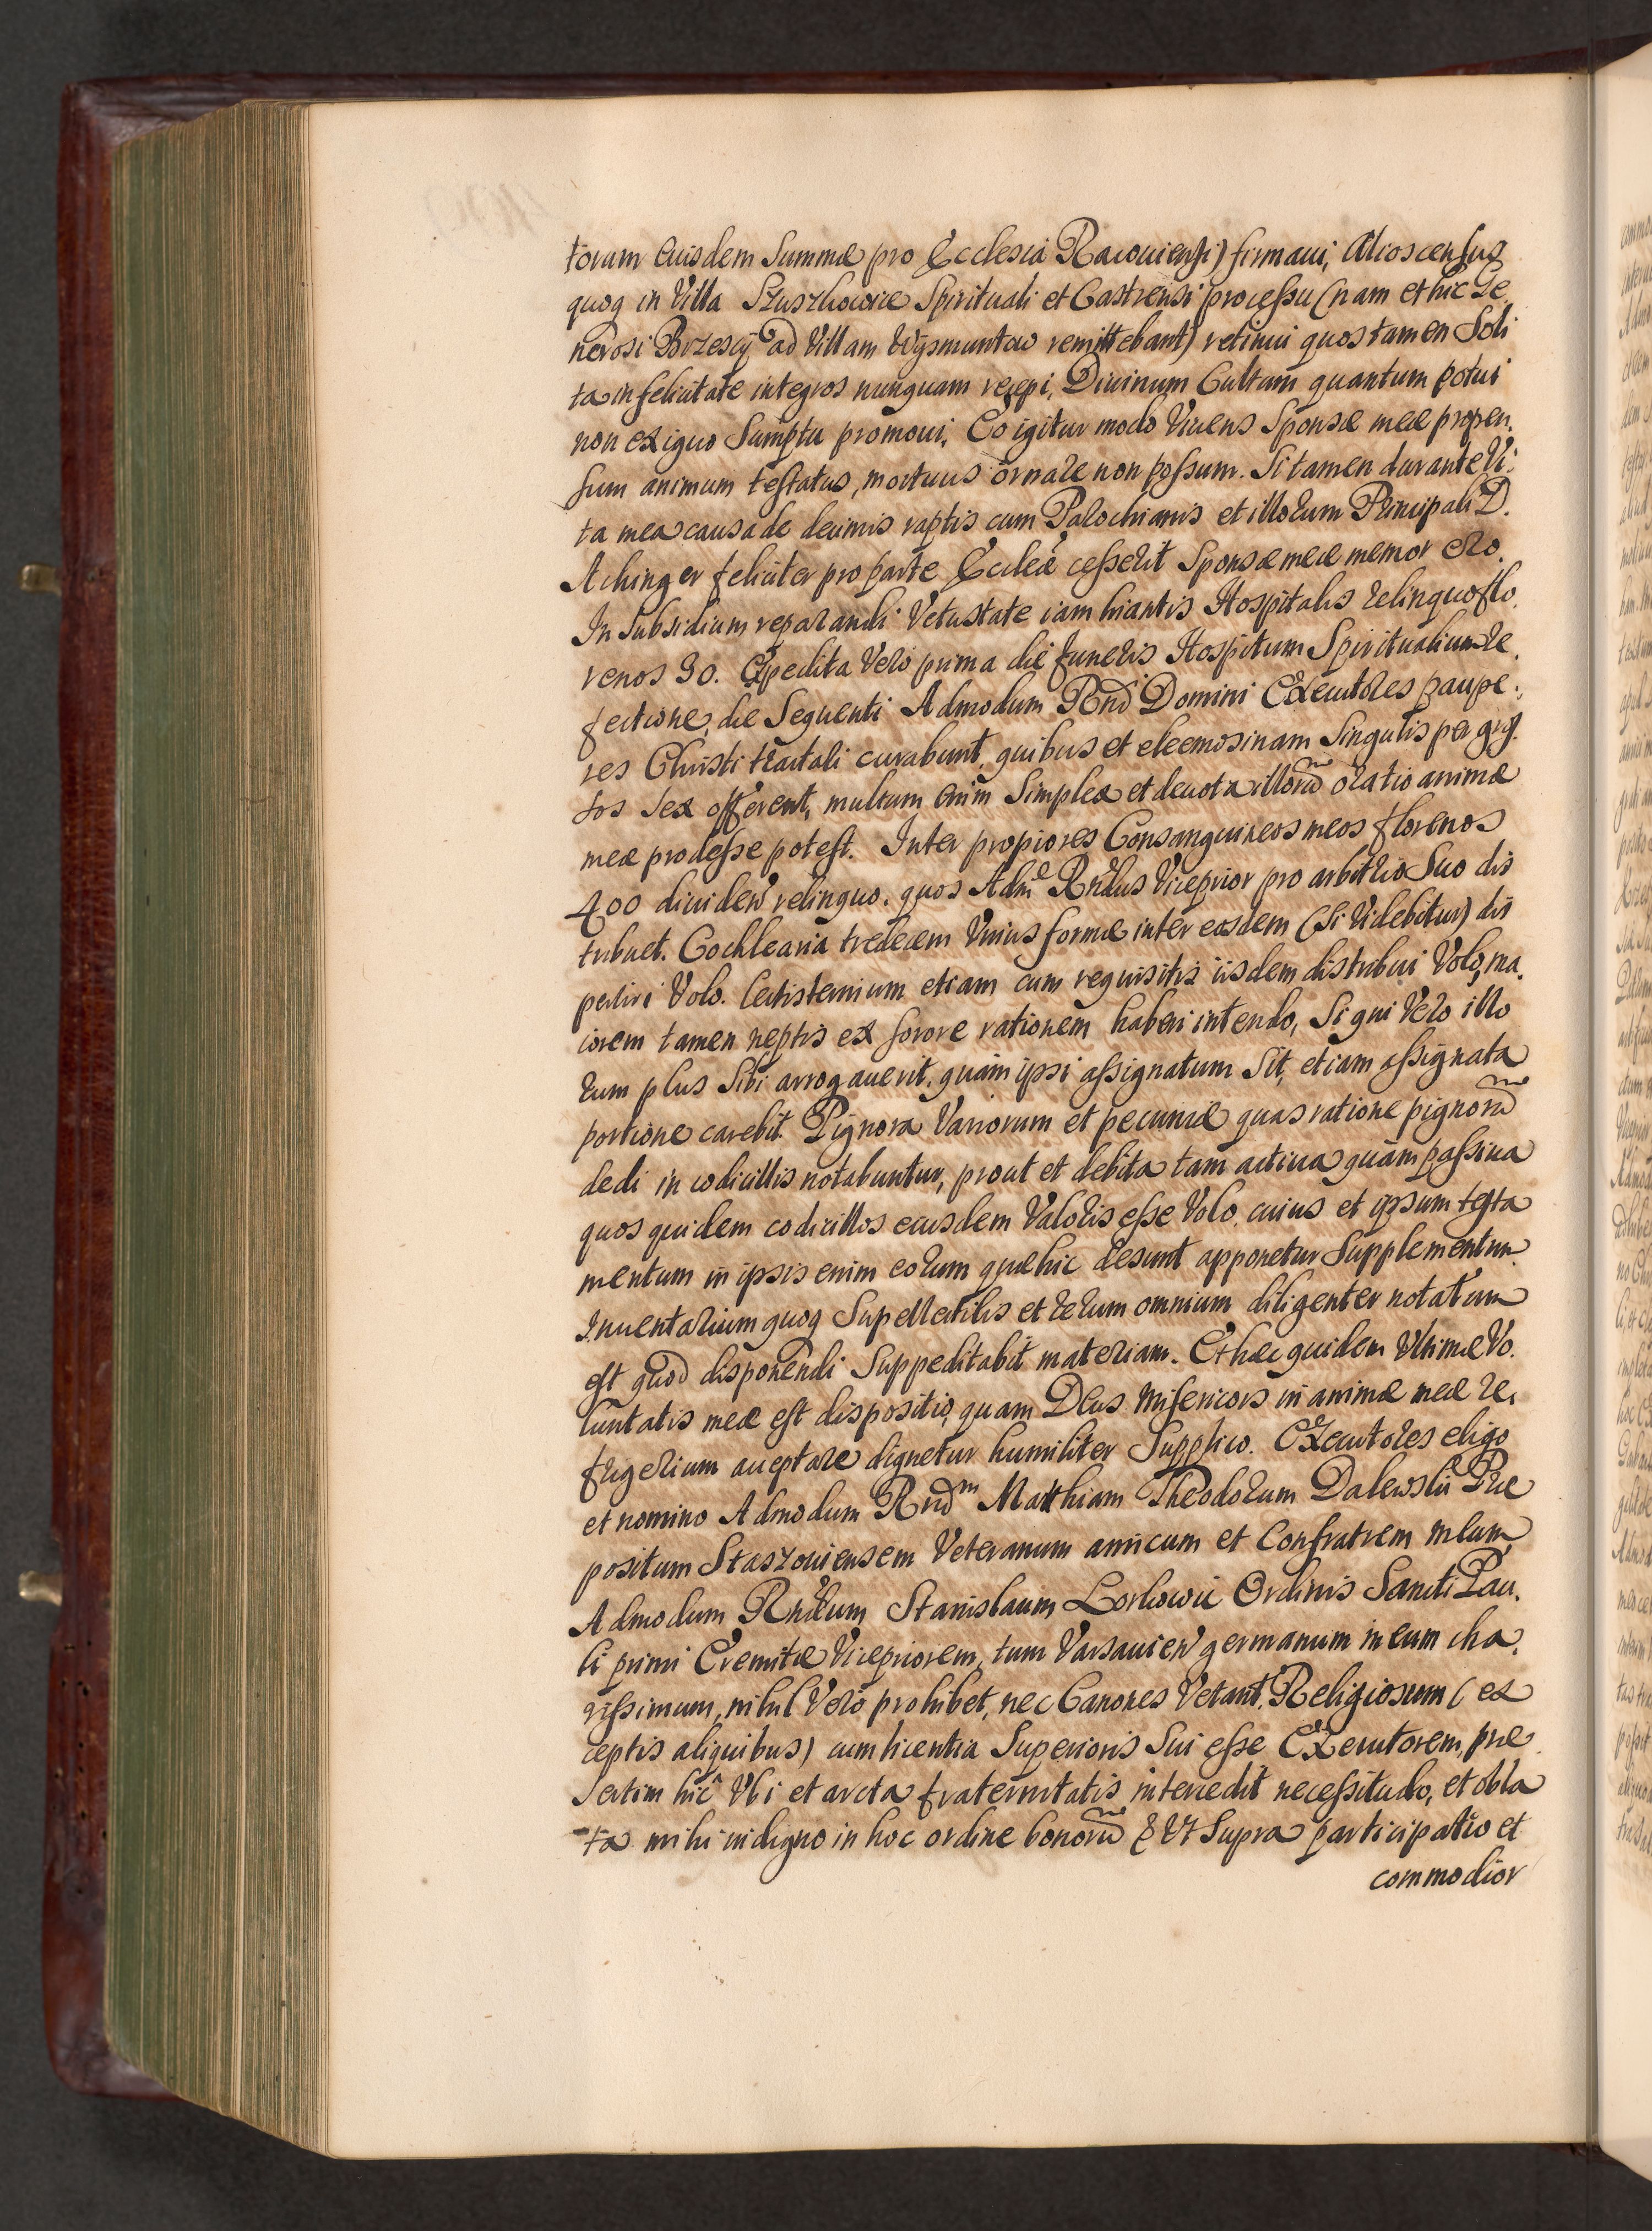 torum Eiusdem Summæ pro Ecclesia Racouiensi) firmaui, Alios census
quoq in Villa Szuszkowice Spirituali et Castrensi processu (nam et hic Ge
nerosi Brzescÿ ad Villam Wÿsmuntow remittebant) retinui quos tamen Soli
ta infelicitate integros nunquam recepi, Diuinum Cultum quantum potui
non exiguo Sumptu promoui, Eo igitur modo Viuens Sponsæ meæ propen.
sum animum testatus, mortuus ornare non possum. Si tamen durante Vi:
ta mea causa de decimis raptis cum Parochianis et illorum Principali D.
Achinger feliciter pro parte Ecclæ cesserit Sponsæ meæ memor ero.
In Subsidium reparandi Vetustate iam hiantis Hospitalis relinquo flo.
renos 30. Expedita Vero prima die funeris Hospitum Spiritualium re.
fectione, die Sequenti Admodum Rnd Domini Executores paupe:
res Christi tractari curabunt, quibus et eleemosinam Singulis per gros
sos sex offerent, multum enim Simplex et deuota illorũ oratio animæ
meæ prodesse potest. Inter propiores Consanguineos meos florenos
400 diuideñ relinquo. quos Adm Rndus Viceprior pro arbitrio Suo dis
tribuet. Cochlearia tredecem Vnius formæ inter eosdem (Si Videbitur) dis
pertiri Volo. Lectisternium etiam cum requisitis iisdem distribui Volo, ma.
iorem tamen neptis ex sorore rationem haberi intendo, Si qui Vero illo
rum plus Sibi arrogauerit, quam ipsi assignatum Sit, etiam assignata
portione carebit. Pignora Variorum et pecuniæ quas ratione pignorũ
dedi in codicillis notabuntur, prout et debita tam actiua quàm passiua
quos quidem codicillos eiusdem Valoris esse Volo. cuius et ipsum testa
mentum in ipsis enim eorum quæ hic desunt apponetur Supplementum.
Inuentarium quoq Supellectilis et rerum omnium diligenter notatum
est quod disponendi Suppeditabit materiam. Et hæc quidem Vltimæ Vo.
luntatis meæ est dispositio, quam Deus Misericors in animæ meæ re.
frigerium acceptare dignetur humiliter Supplico. Executores eligo
et nomino Admodum Rndm Matthiam Theodorum Dalewski Præ
positum Staszouiensem Veteranum amicum et Confratrem meum,
Admodum Rndum Stanislaum Lorkowic Ordinis Sancti Pau.
li primi Eremitæ Vicepriorem, tum Varsauieñ germanum meum cha
rissimum, nihil Vero prohibet, nec Canones Vetant, Religiosum (ex
ceptis aliquibus) cum licentia Superioris Sui esse Executorem, præ
sertim hic Vbi et arcta fraternitatis intercedit necessitudo, et obla
ta mihi indigno in hoc ordine bonorũ & Vt Supra participatio et
commodior